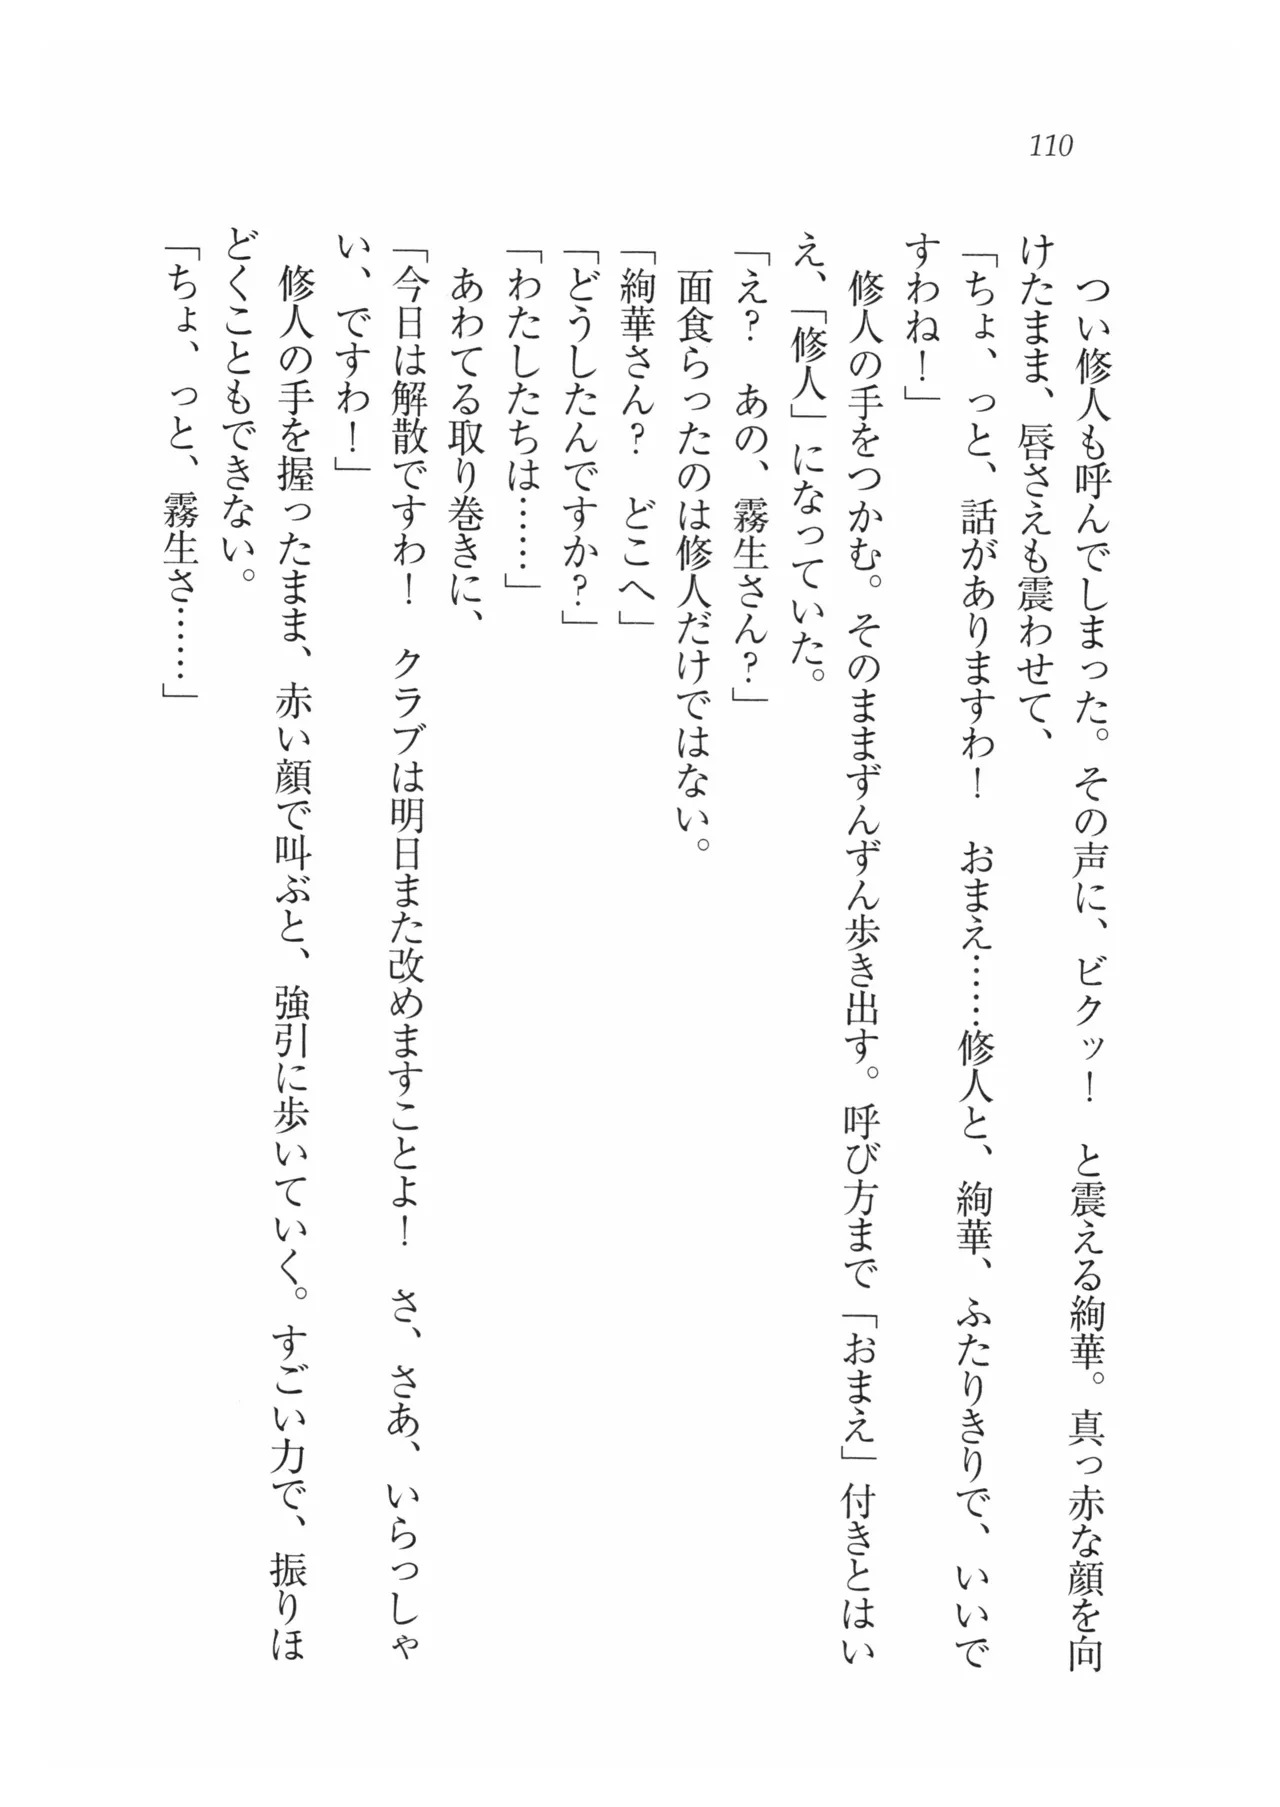 110
　つい修人も呼んでしまった。その声に、ビクッ！　と震える絢華。真っ赤な顔を向
けたまま、唇さえも震わせて、
「ちょ、っと、話がありますわ！　おまえ……修人と、絢華、ふたりきりで、いいで
すわね！」
　修人の手をつかむ。そのままずんずん歩き出す。呼び方まで「おまえ」付きとはい
え、「修人」になっていた。
「え？　あの、霧生さん？」
　面食らったのは修人だけではない。
「絢華さん？　どこへ」
「どうしたんですか？」
「わたしたちは……」
　あわてる取り巻きに、
「今日は解散ですわ！　クラブは明日また改めますことよ！　さ、さあ、いらっしゃ
い、ですわ！」
　修人の手を握ったまま、赤い顔で叫ぶと、強引に歩いていく。すごい力で、振りほ
どくこともできない。
「ちょ、っと、霧生さ……」